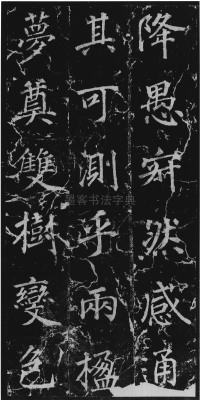 降愚寂然感通
其可測乎兩楹
夢奠雙樹變色
墨客书法字典